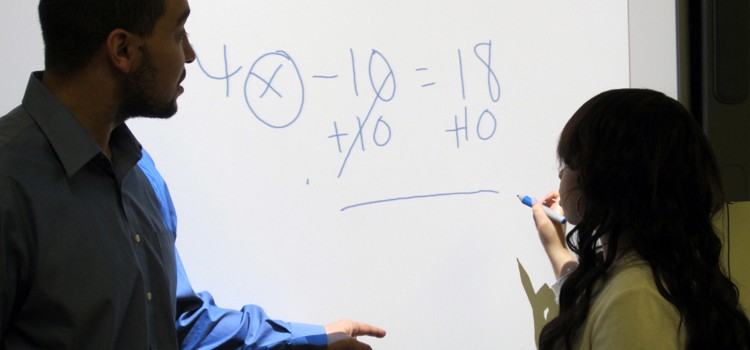 4x -10 = 18
+10 +10